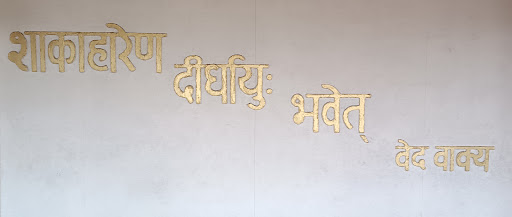 शाकाहारेण
दीर्घायुः
भवेत्
वेद वाक्य